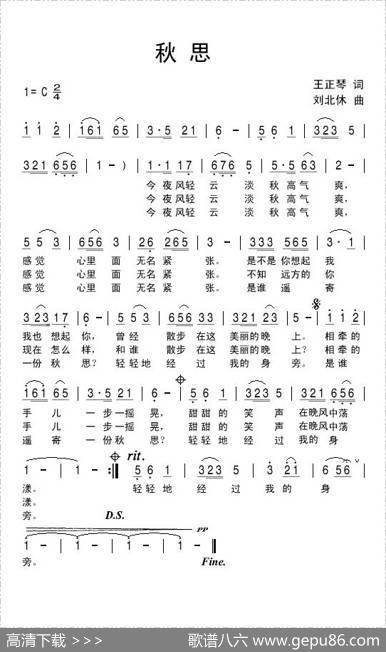 秋思
1=C 2/4
王正琴 词
刘北休 曲
i i 2 | i6i 65 | 3·5 21 | 6 - | 56 1 | 323 5 |
321 656 | 1 - ) | 1·1 17 | 676 5 | 5·5 63 | 2 - |
今夜风轻 云 淡 秋高气 爽,
今夜风轻 云 淡 秋高气 爽,
今夜风轻 云 淡 秋高气 爽,
55 3 | 656 3 | 26 265 | 3 - | 333 565 | 3·1 |
感觉 心里 面 无名 紧 张。 是不是你想起 我
感觉 心里 面 无名 紧 张。 不知 远方的 你
感觉 心里 面 无名 紧 张。 是谁 遥 寄
323 17 | 6 - | 55 3 | 323 5 | 323 565 | 1 - | i i 2 |
我也 想起 你, 曾经 散步 在这 美丽的晚 上。 相牵的
现在 怎么 样, 和谁 散步 在这 美丽的晚 上? 相牵的
一份 秋 思? 轻轻地 经 过 我的 身 旁。 是谁
i6i 65 | 3·5 21 | 6 - | 56 1 | 323 5 | 321 656 |
手 儿 一步一摇 晃, 甜甜的 笑 声 在晚风中荡
手 儿 一步一摇 晃, 甜甜的 笑 声 在晚风中荡
遥 寄 一份秋 思? 轻轻地 经 过 我的 身
rit.
1 - | 1 - :‖ 56 1 | 323 5 | 3 21 | 6 56 |
漾。 轻轻地 经 过 我 的 身
漾。
旁。 D.S.
pp
1 - | 1 - | 1 - | 1 - ‖
旁。 Fine.
高清下载 >>> 歌谱八六 www.gepu86.com